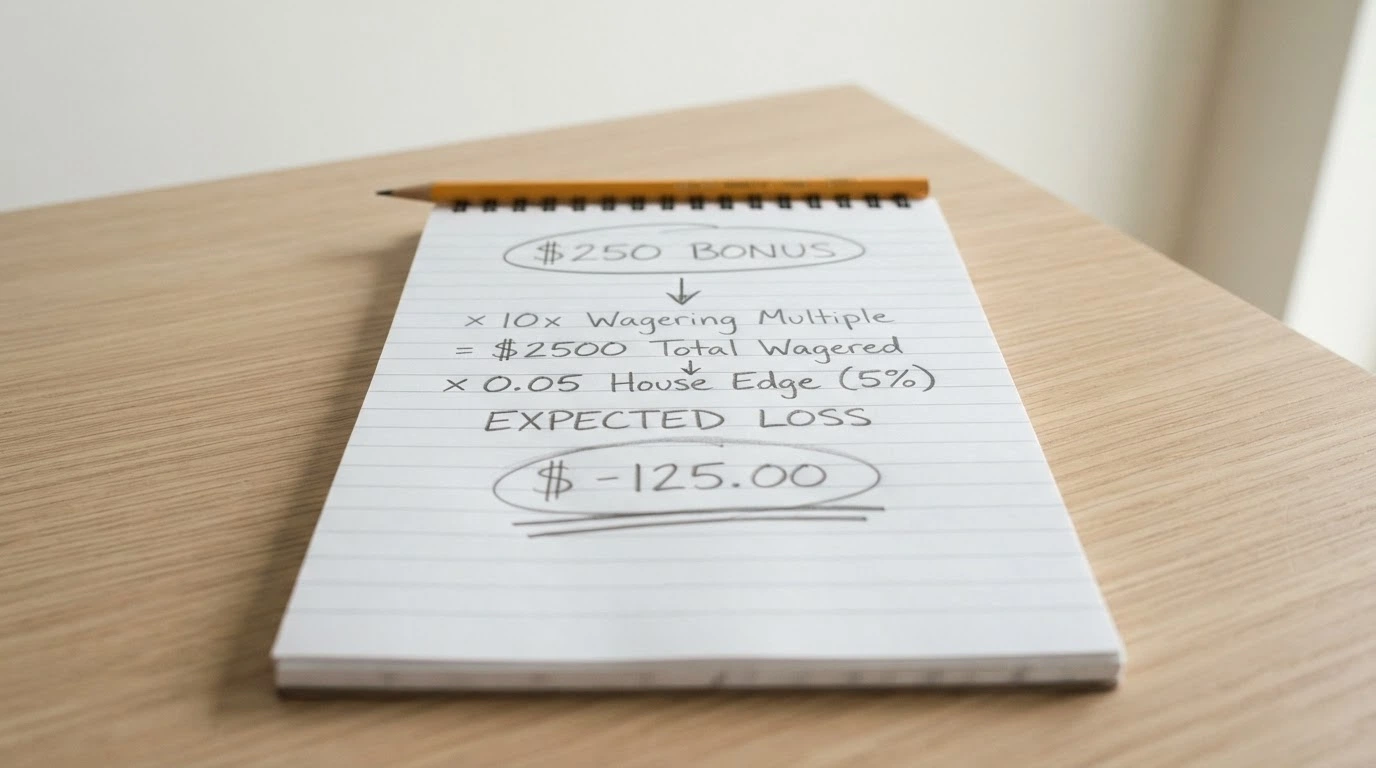 $250 BONUS
↓
× 10x Wagering Multiple
= $2500 Total Wagered
↓
× 0.05 House Edge (5%)
EXPECTED LOSS
$ -125.00